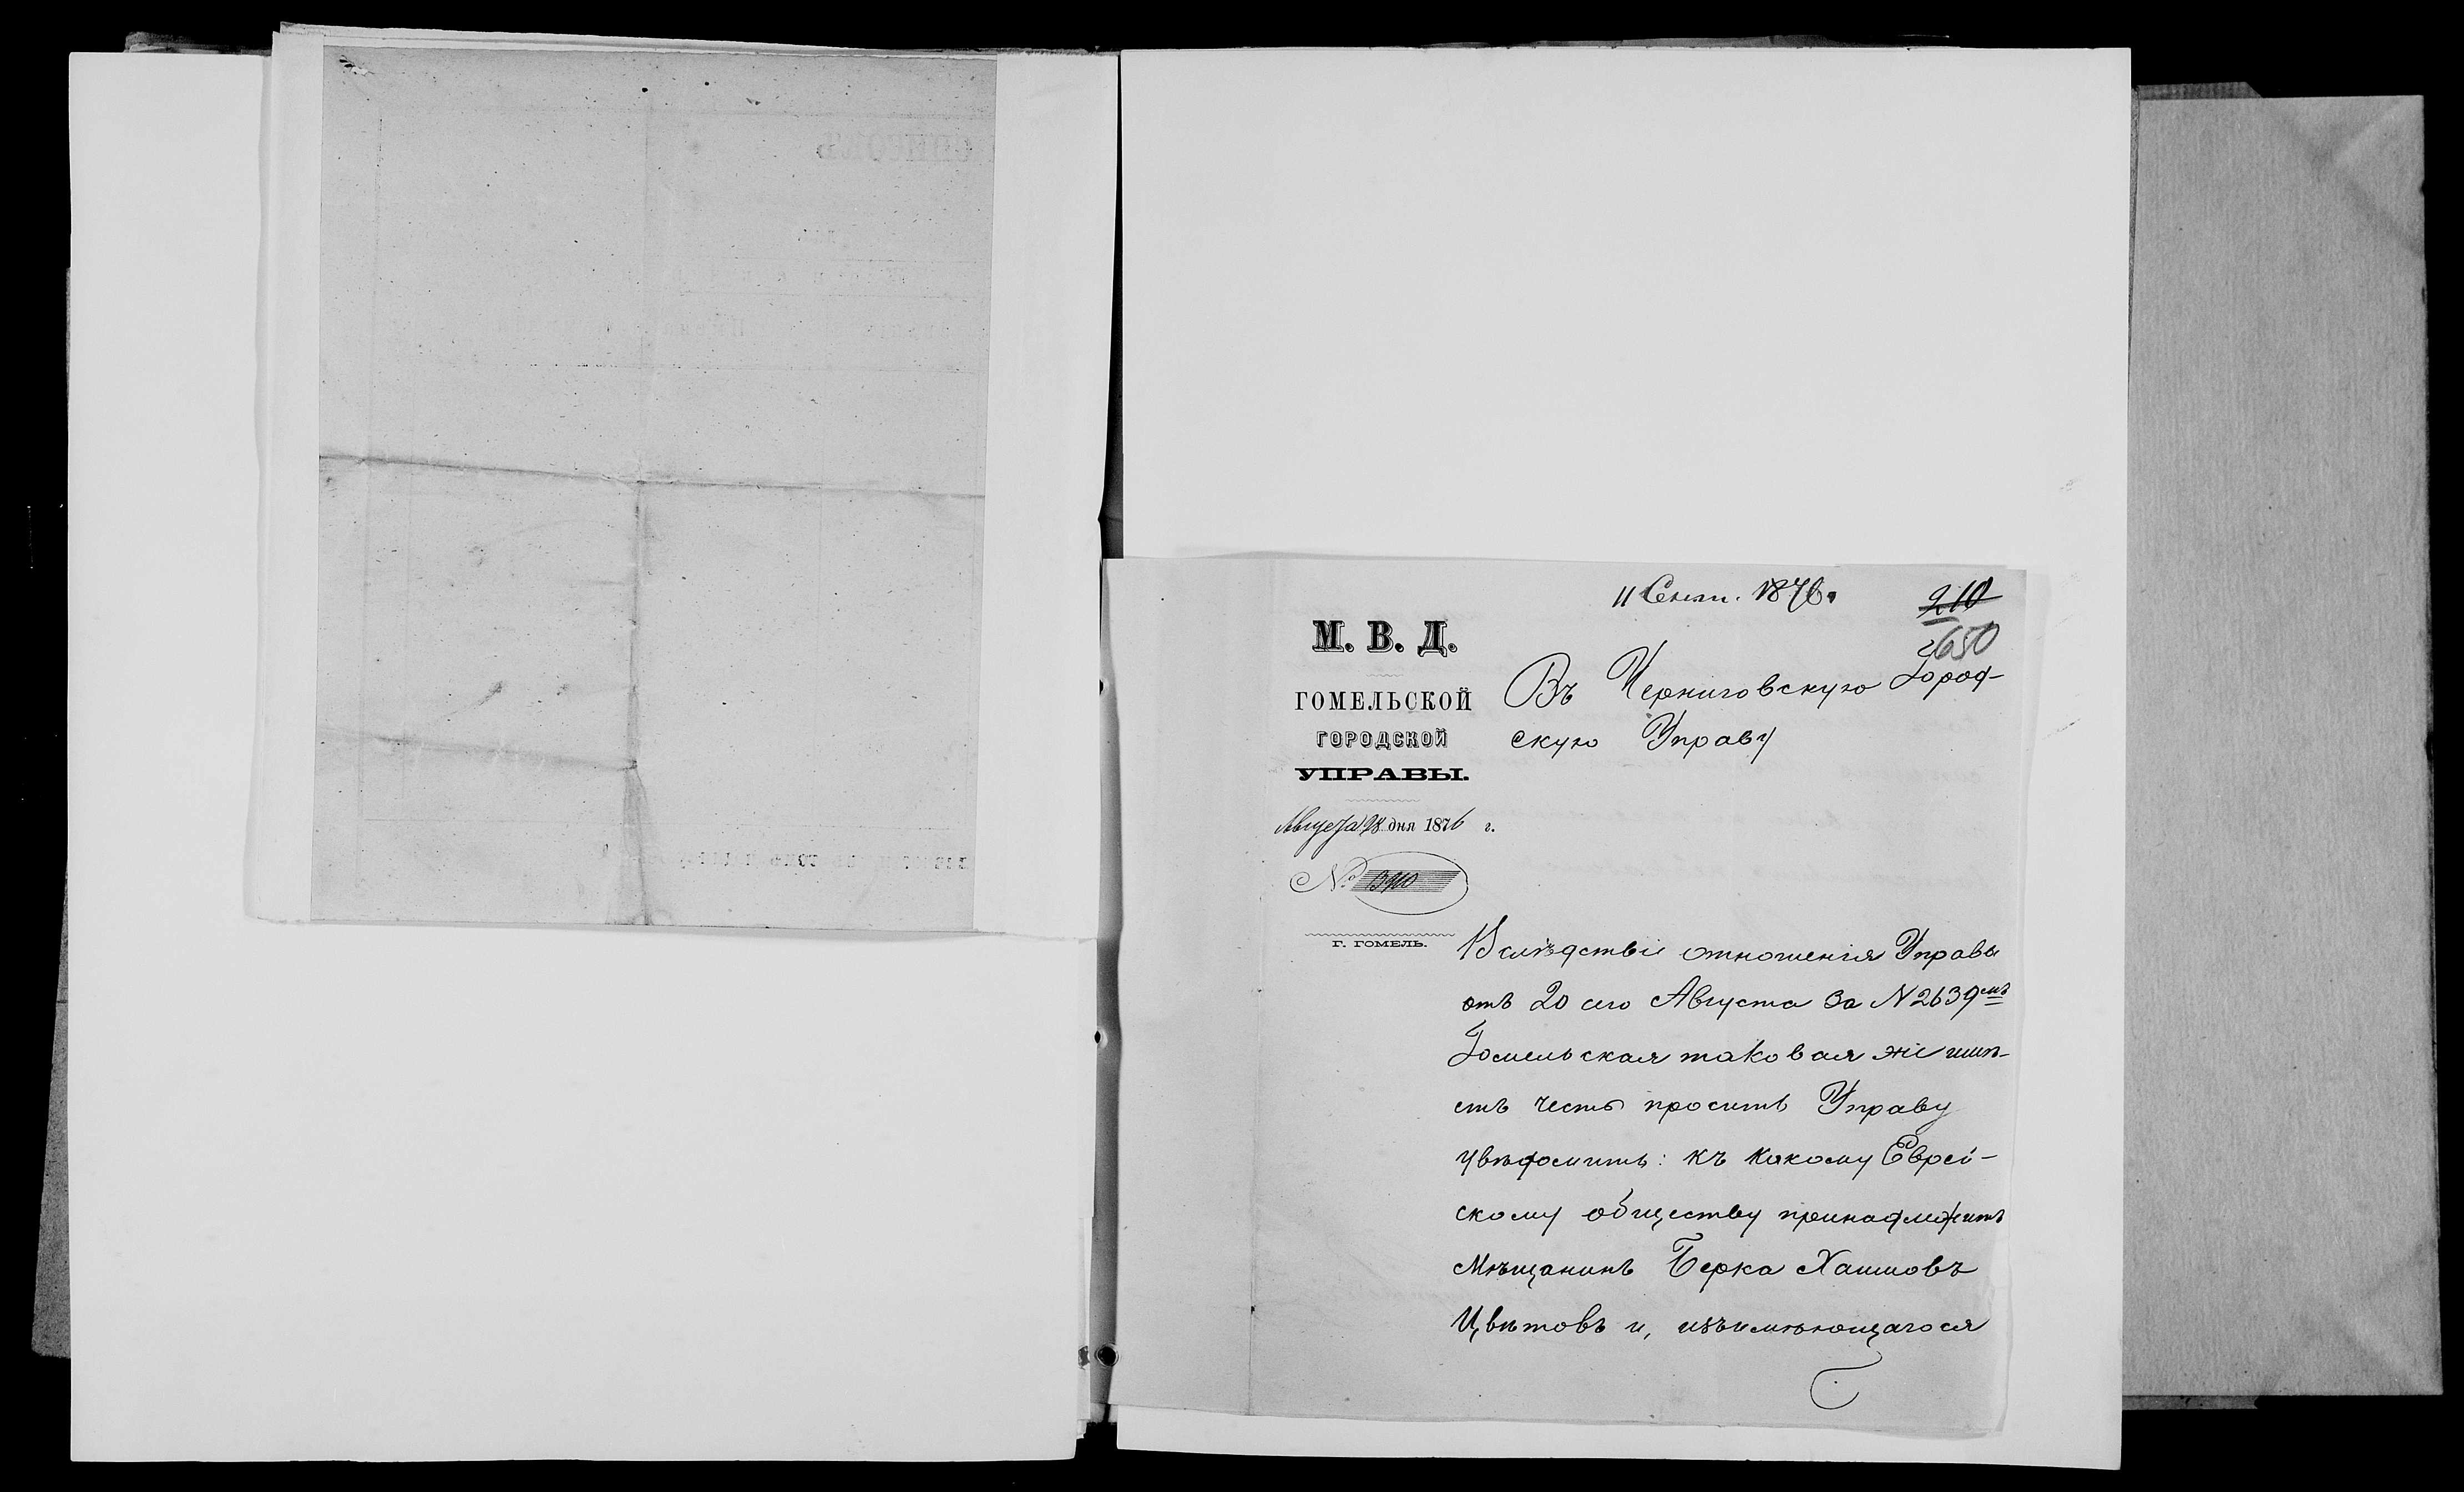 11 Сент. 1876 г.
210
650
М. В. Д.
ГОМЕЛЬСКОЙ
ГОРОДСКОЙ
УПРАВЫ.
Августа 28 дня 1876 г.
№
г. ГОМЕЛЬ.
Въ Черниговскую Город-
скую Управу
Вслѣдствіе отношенія Управы
отъ 20 сего Августа за N 2639мъ
Гомельская таковая же имѣ-
етъ честь просить Управу
увѣдомить: къ какому Еврей-
скому обществу принадлежитъ
мѣщанинъ Берка Хаимовъ
Цвѣтовъ и, изъ имѣющагося